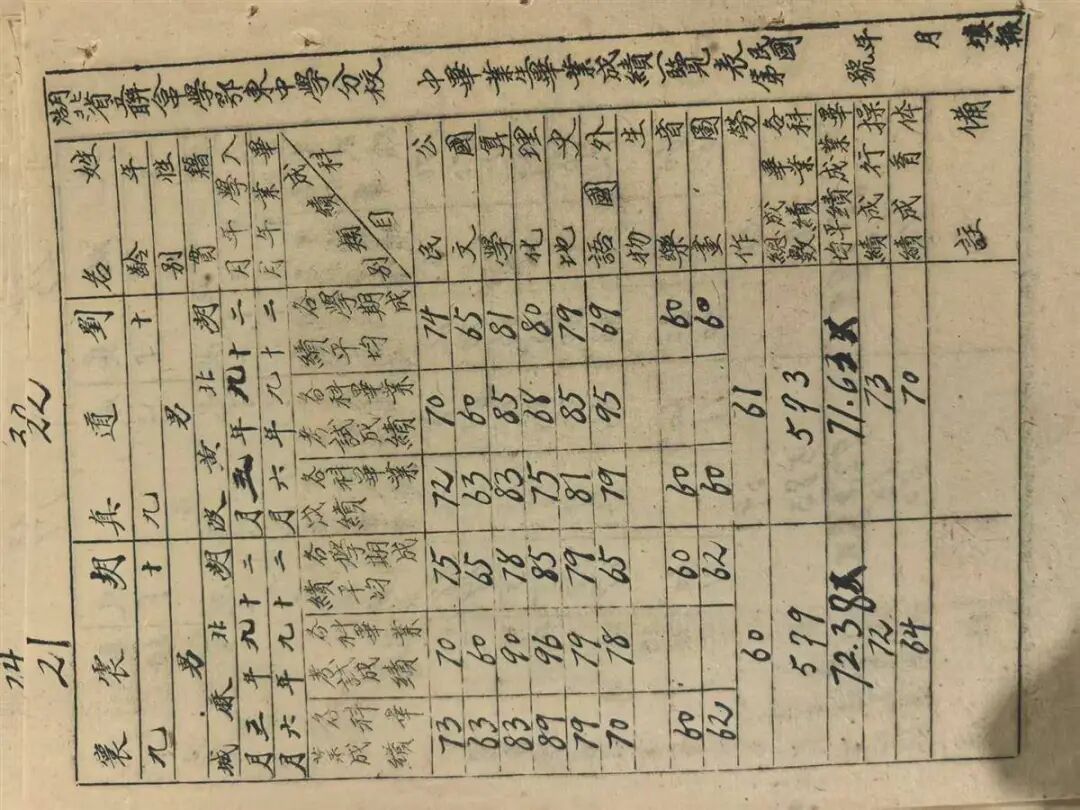 湖北省聯合中學鄂東中學分校 中畢業生畢業成績一覽表 民國 第 號 年 月 填報
姓名 年齡 性別 籍貫 入學年月 畢業年月 科目 成績類別 公民 國文 算學 理化 史地 外國語 生物 音樂 圖畫 勞作 各科畢業成績總數 畢業成績平均 操行成績 体育成績 備註
劉道真 十九 男 湖北黃陂 二十九年五月 二十九年六月
各學期成績平均 74 65 81 80 79 69 60 60
各科畢業考試成績 70 60 85 68 85 95
各科畢業成績 72 63 83 75 81 79 60 60
61 593 71.63 73 70
22
胡震寰 十九 男 湖北麻城 二十九年五月 二十九年六月
各學期成績平均 75 65 78 85 79 65 60 62
各科畢業考試成績 70 60 90 96 79 78
各科畢業成績 73 63 83 89 79 70 60 62
60 579 72.38 72 64
21